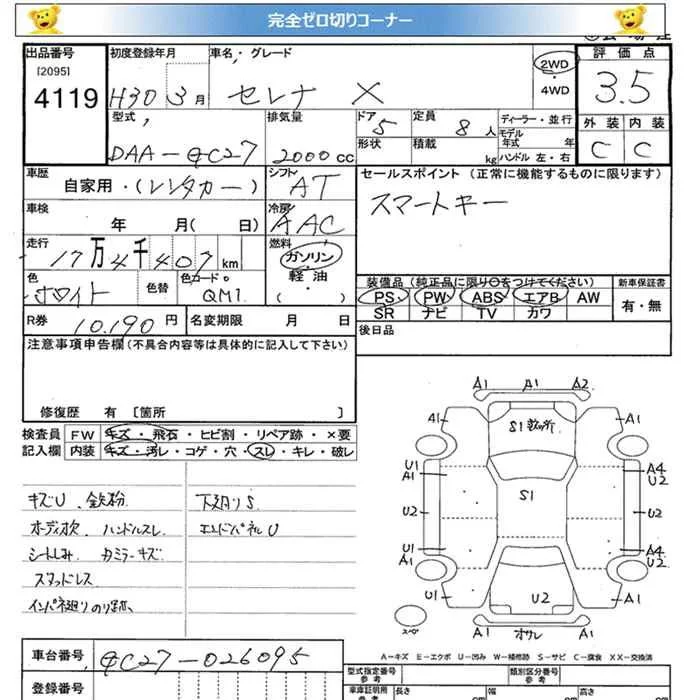 完全ゼロ切りコーナー
出品番号 初度登録年月 車名・グレード 評価点
[2095] 4119 H30 3月 セレナ X 2WD・4WD 3.5
型式 排気量 ドア 定員 ディーラー・並行 外装 内装
DAA-GC27 2000cc 5 8人 モデル年式 年 C C
形状 積載 kg ハンドル 左・右
車歴 シフト セールスポイント(正常に機能するものに限ります)
自家用・(レンタカー) AT スマートキー
車検 冷房
年 月(日) AAC
走行 燃料
17万4千407km ガソリン・軽・油
色 色替 色カードo ( )
ホワイト QM1
装備品(純正品に限り○をつけてください) 新車保証書
PS PW ABS エアB AW 有・無
SR ナビ TV カワ
R券 10,190円 名変期限 月 日
後日品
注意事項申告欄(不具合内容等は具体的に記入して下さい)
修復歴 有 [箇所 ]
検査員 FW キズ・飛石・ヒビ割・リペア跡・×要
記入欄 内装 キズ・汚レ・コゲ・穴・スレ・キレ・破レ
キズU、鉄粉 下廻りS
ボディ汚 ハンドルスレ エンドパネルU
シートしみ
スタッドレス
インパネ廻りのり跡
A1 A1 A2
A1 S1 A1
U1 A1 A4 U2
S1
U2 U2
U1 A1 A4 U2
U1 U2 A1
スペア A1 オサレ A1
A-キズ E-エクボ U-凹み W-補修跡 S-サビ C-腐食 XX-交換済
車台番号 GC27-026095
型式指定番号 参考 類別区分番号 参考
登録番号 車庫証明用 参考 長さ cm 幅 cm 高さ cm